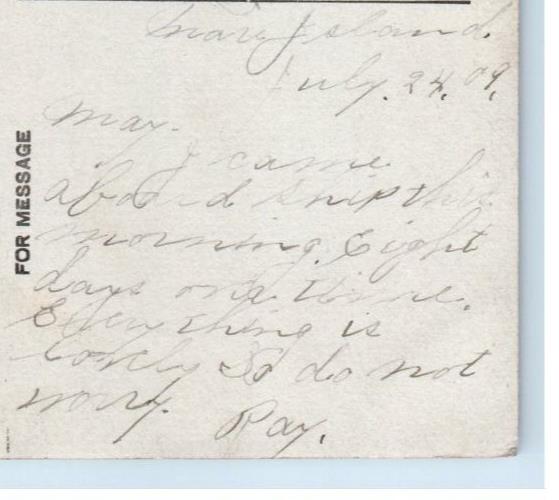 Mare Island.
July. 24, 09,
May.
I came
aboard ship this
morning. Eight
days over time.
Everything is
lovely So do not
worry.
Ray.
FOR MESSAGE